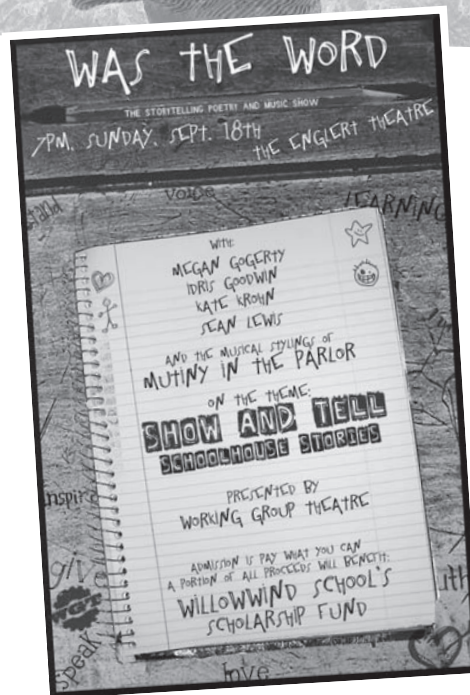 WAS THE WORD
THE STORYTELLING POETRY AND MUSIC SHOW
7PM, SUNDAY, SEPT. 18TH
THE ENGLERT THEATRE
Voice
LEARNING
WITH:
MEGAN GOGERTY
IDRIS GOODWIN
KATE KROHN
SEAN LEWIS
AND THE MUSICAL STYLINGS OF
MUTINY IN THE PARLOR
ON THE THEME:
SHOW AND TELL
SCHOOLHOUSE STORIES
PRESENTED BY
WORKING GROUP THEATRE
inspire
ADMISSION IS PAY WHAT YOU CAN
A PORTION OF ALL PROCEEDS WILL BENEFIT:
WILLOWWIND SCHOOL'S
SCHOLARSHIP FUND
give
WGT
speak
love